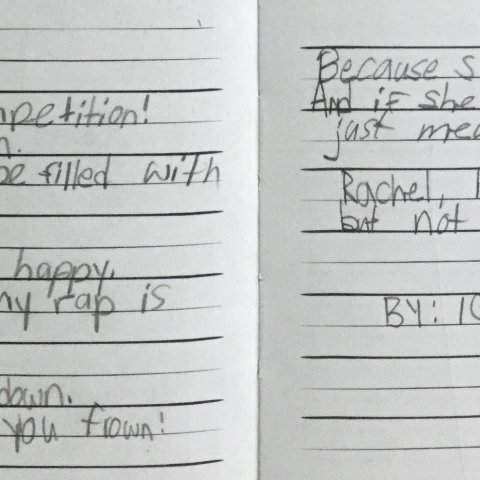 mpetition!
n.
be filled with
happy.
my rap is
down.
you frown!
Because s
And if she
just mea
Rachel, I
but not
BY: